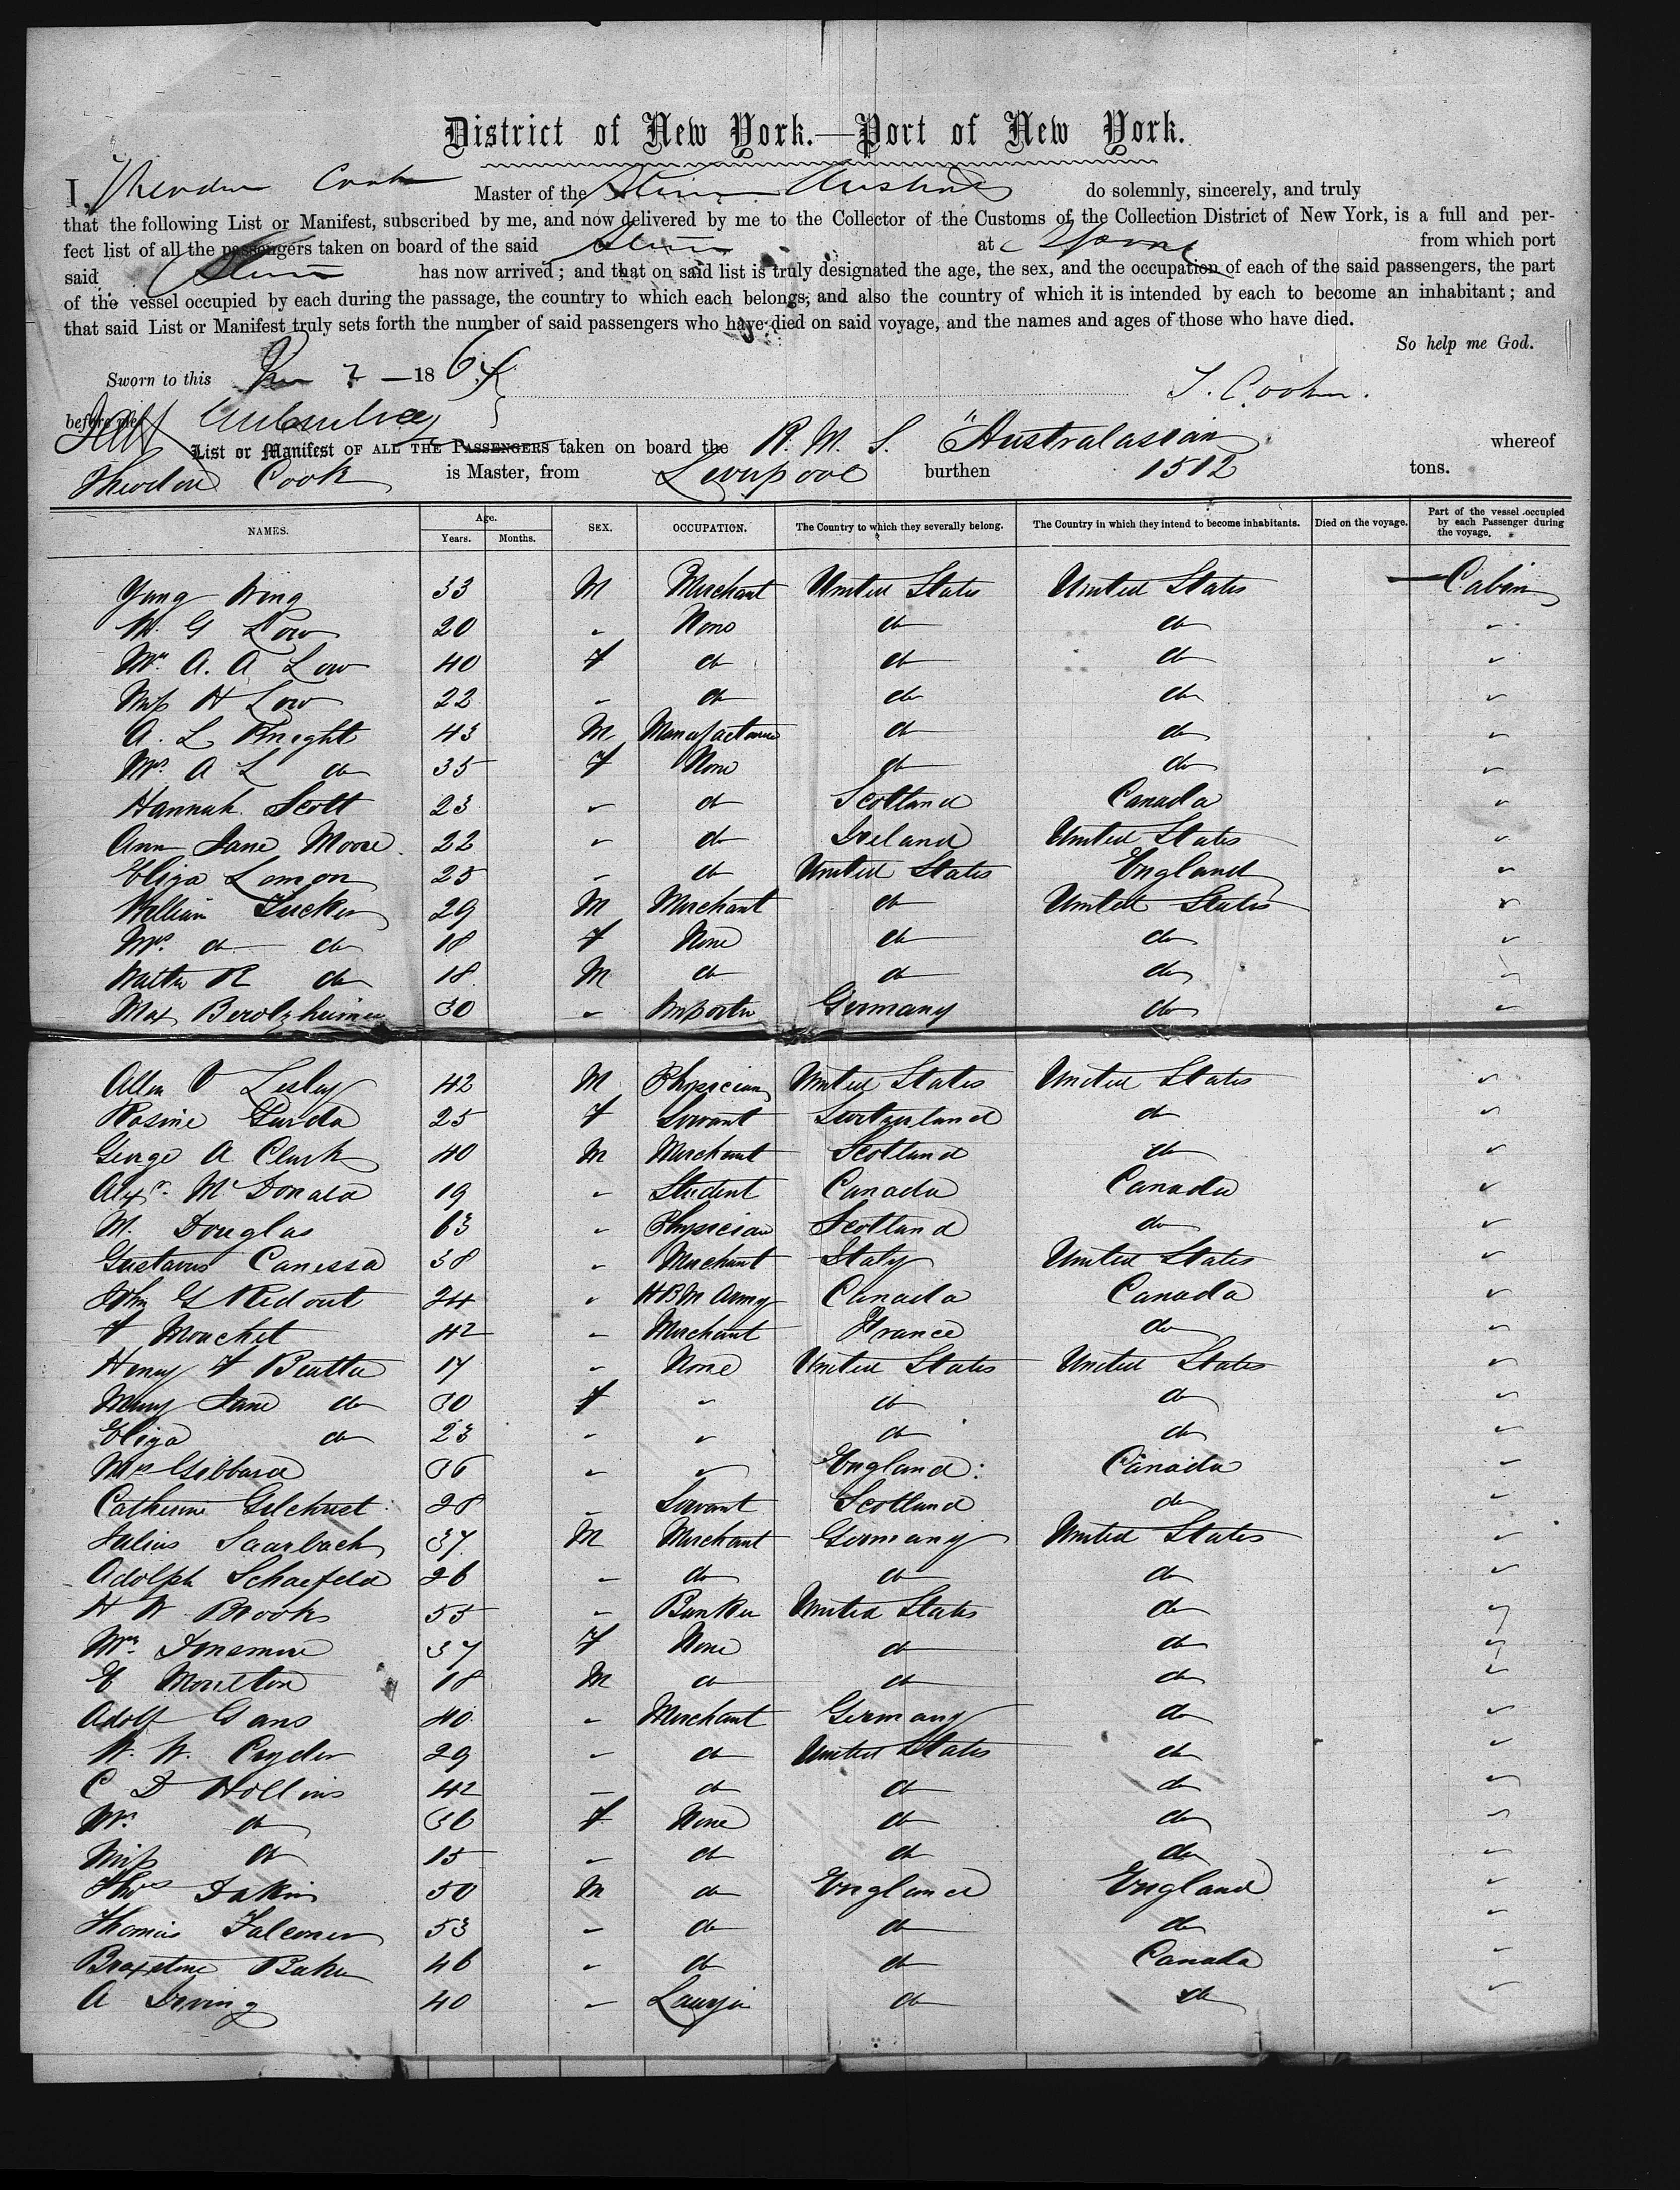 District of New York.—Port of New York.
I, Theodore Cook Master of the Stmr do solemnly, sincerely, and truly
that the following List or Manifest, subscribed by me, and now delivered by me to the Collector of the Customs of the Collection District of New York, is a full and per-
fect list of all the passengers taken on board of the said Stmr at from which port
said Stmr has now arrived; and that on said list is truly designated the age, the sex, and the occupation of each of the said passengers, the part
of the vessel occupied by each during the passage, the country to which each belongs, and also the country of which it is intended by each to become an inhabitant; and
that said List or Manifest truly sets forth the number of said passengers who have died on said voyage, and the names and ages of those who have died.
So help me God.
Sworn to this 7 —1864
T. Cook
before me
List or Manifest OF ALL THE PASSENGERS taken on board the R. M. S. "Australasian whereof
Theodore Cook is Master, from Liverpool burthen 1512 tons.
NAMES. Age. Years. Months. SEX. OCCUPATION. The Country to which they severally belong. The Country in which they intend to become inhabitants. Died on the voyage. Part of the vessel occupied by each Passenger during the voyage.
Yung Wing 33 M Merchant United States United States Cabin
W. G Low 20 " None do do "
Mrs. A. A Low 40 F do do do "
Miss H Low 22 " do do do "
A. L Knight 43 M Manufacturer do do "
Mrs. A L do 35 F None do do "
Hannah Scott 23 " do Scotland Canada "
Ann Jane Moore 22 " do Ireland United States "
Eliza Lemon 25 " do United States England "
William Tucker 29 M Merchant do United States "
Mrs. do do 18 F None do do "
Walter R do 18 M do do do "
Max Berolzheimer 30 " Importer Germany do "
Allen V Lesley 42 M Physician United States United States "
Rosine Gurda 25 F Servant Switzerland do "
George A Clark 40 M Merchant Scotland do "
Alexr. McDonald 19 " Student Canada Canada "
M. Douglas 63 " Physician Scotland do "
Gustavus Canessa 38 " Merchant Italy United States "
John G Ridout 24 " H B M Army Canada Canada "
F Mouchet 42 " Merchant France do "
Henry F Beattie 17 " None United States United States "
Mary Jane do 30 F " do do "
Eliza do 23 " " do do "
Mrs Gibbard 36 " " England Canada "
Catherine Gilchrist 28 " Servant Scotland do "
Julius Saarbach 37 M Merchant Germany United States "
Adolph Schaefeld 26 " do do do "
H W Brooks 55 " Banker United States do "
Mrs. Dinsmore 37 F None do do "
E Moulton 18 M do do do "
Adolf Gans 40 " Merchant Germany do "
W. W. Cryder 29 " do United States do "
C D Hollins 42 " do do do "
Mrs. do 36 F None do do "
Miss do 15 " do do do "
Thos Dakin 50 M do England England "
Thomas Falconer 53 " do do do "
Braxstone Baker 46 " do do Canada "
A Irving 40 " Lawyer do do "